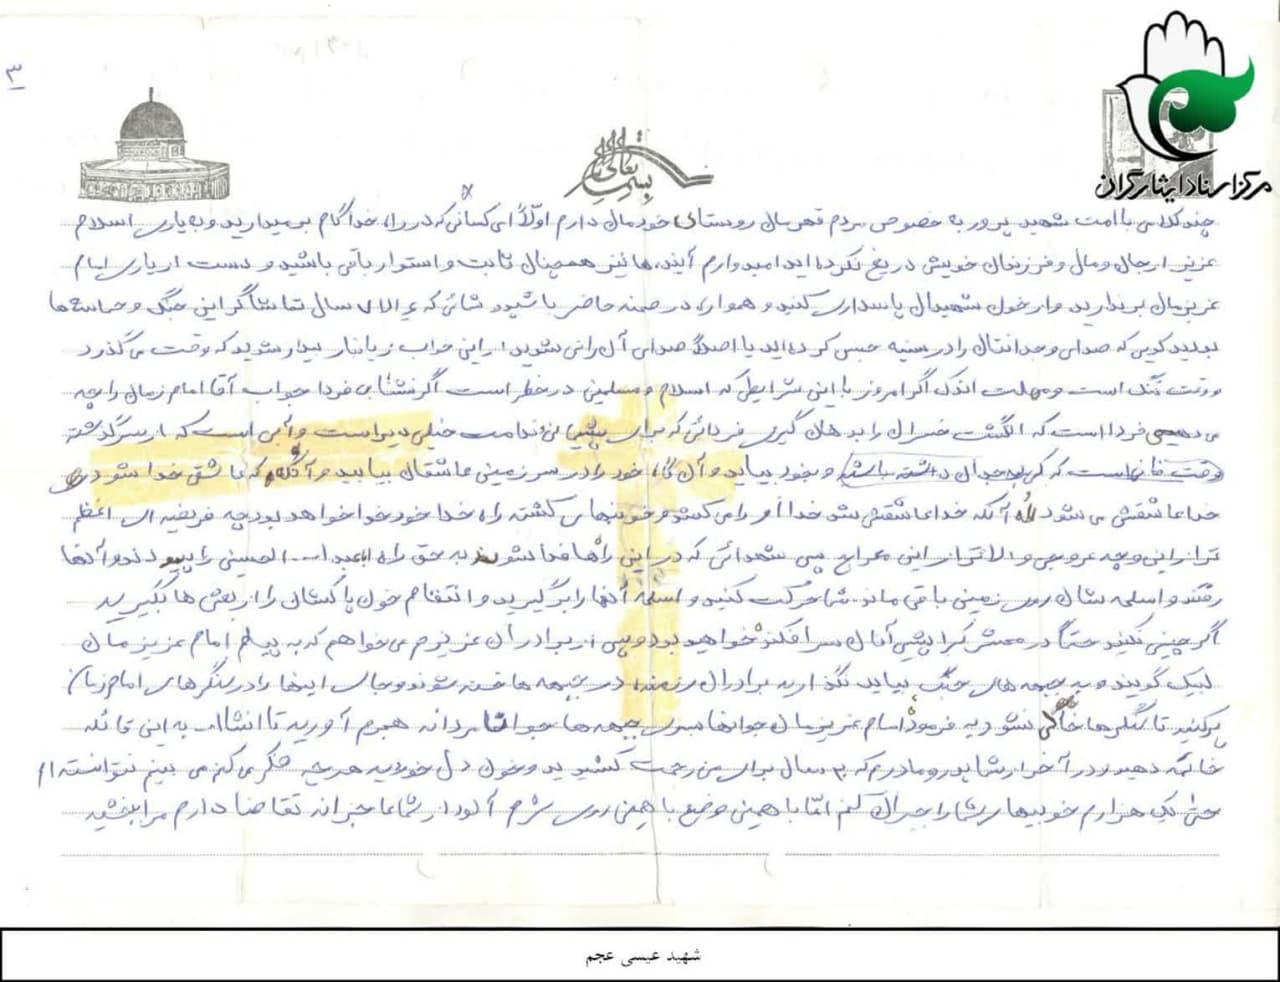 ۳
مرکز اسناد ایثارگران
بسمه تعالی
چند کلامی با امت شهید پرور به خصوص مردم قهرمان روستای خودمان دارم اولاً ای کسانی که در راه خدا گام بر میدارید و به یاری اسلام
عزیز از جان و مال و فرزندان خویش دریغ نکرده اید امیدوارم آینده ها نیز همچنان ثابت و استوار باقی باشید و دست از یاری امام
عزیزمان بر ندارید و از خون شهیدان پاسداری کنید و همواره در صحنه حاضر باشید شمائی که ۶ الا ۷ سال تماشاگر این جنگ و حماسه ها
بودید کویی که صدای وجدانتان را در سینه حبس کرده اید یا اصلاً صدای آن را نمی شنوید از این خواب زیانبار بیدار شوید که وقت می گذرد
وقت تنگ است و مهلت اندک اگر امروز با این شرایطی که اسلام و مسلمین در خطر است اگر نشتابی فردا جواب آقا امام زمان را چه
می دهیم فردا است که انگشت خسران را بدهان گیری فردائی که برای پشیمانی و ندامت خیلی دیر است و آبی است که از سر گذشته
وقت است که داشته باشید و بخود بیایید و آن گاه خود را در سرزمین عاشقان بیابید و آنگاه که عاشق خدا شود
خدا عاشقش می شود و آنکه خدا عاشقش شود خدا او را می کشد و خونبهای کشته راه خدا خود خدا خواهد بود چه فریضه ای اعظم
تر از این و چه عروجی والاتر از این معراج پس شهدائی که در این راهها فدا شوند به حق راه ابا عبدالله الحسین را پیمودند و آنها
رفتند و اسلحه شان روی زمین باقی مانده شما حرکت کنید و اسلحه آنها را برگیرید و انتقام خون پاکشان را از بعثی ها بگیرید
اگر چنین نکنید حتماً در محشر کبرا پیش آنان سرافکنده خواهید بود و پس از برادران عزیزم می خواهم که به پیام امام عزیزمان
لبیک گویند و به جبهه های جنگ بیایند نگذارید برادران رزمنده در جبهه ها خسته شوند و جای اینها را در سنگرهای امام زمان
پر کنید تا سنگرها خالی نشود به فرموده امام عزیزمان جوانها بسوی جبهه ها مردانه هجوم آورید تا انشاالله به این غائله
خاتمه دهید و در آخر از شما پدر و مادرم که ۲۰ سال برای من زحمت کشیدید و خون دل خوردید هر چه فکر می کنم می بینم نتوانسته ام
حتی یک هزارم خوبیهای شما را جبران کنم امّا با همین وضع با همین روی شرم آلود از شما عاجزانه تقاضا دارم مرا ببخشید
شهید عیسی عجم